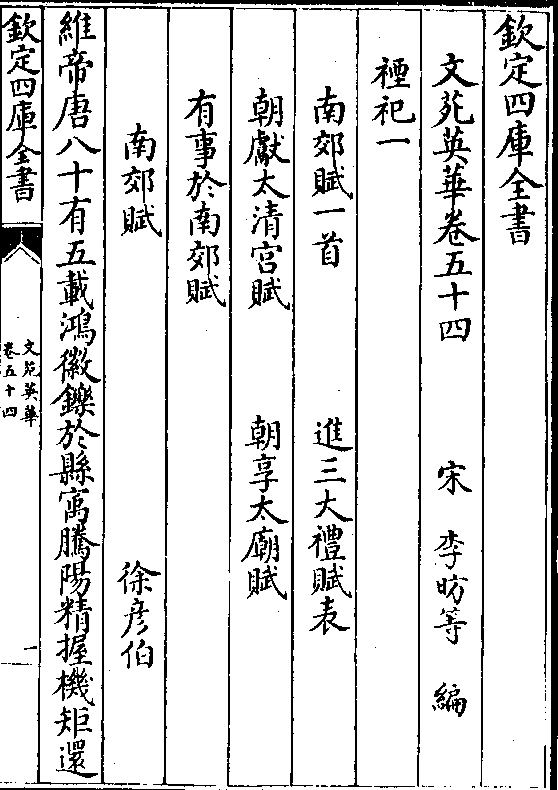 欽定四庫全書
文苑英華卷五十四 宋 李昉等 編
禋祀一
南郊賦一首 進三大禮賦表
朝獻太清宫賦 朝享太廟賦
有事於南郊賦
南郊賦 徐彦伯
維帝唐八十有五載鴻徽鑠於縣寓騰陽精握機矩還
欽定四庫全書
文苑英華
卷五十四
一